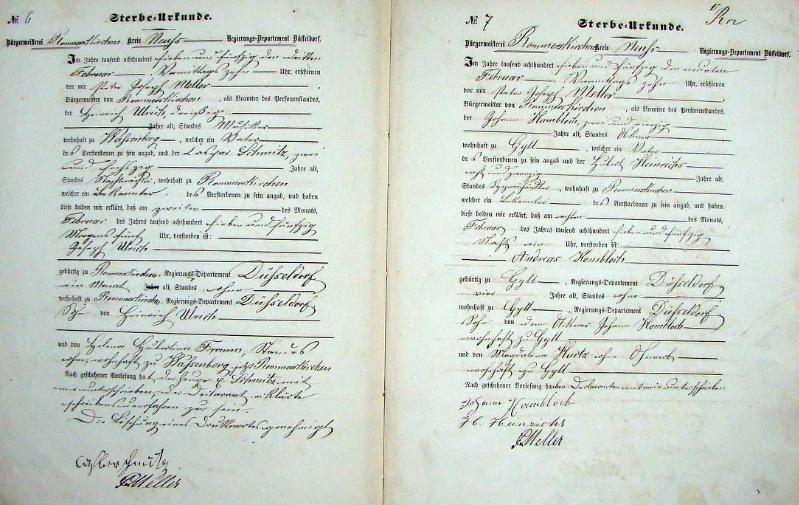 № 6
Sterbe-Urkunde.
Bürgermeisterei Rommerskirchen Kreis Neuss Regierungs-Departement Düsseldorf.
Im Jahre tausend achthundert sieben und fünfzig den dritten
Februar Vormittags zehn Uhr, erschienen
vor mir Peter Joseph Meller
Bürgermeister von Rommerskirchen, als Beamten des Personenstandes,
der Heinrich Ulrich, dreißig
Jahre alt, Standes Musiker
wohnhaft zu Wassenberg, welcher ein Vater
des Verstorbenen zu sein angab, und der Caspar Schmitz, zwei
und Jahre alt,
Standes, wohnhaft zu Rommerskirchen
welcher ein Bekannter des Verstorbenen zu sein angab, und haben
diese beiden mir erklärt, daß am zweiten des Monats,
Februar des Jahres tausend achthundert sieben und fünfzig
Morgens fünf Uhr, verstorben ist:
Joseph Ulrich
gebürtig zu Rommerskirchen, Regierungs-Departement Düsseldorf
ein Monat Jahre alt, Standes ohne
wohnhaft zu Rommerskirchen, Regierungs-Departement Düsseldorf
Sohn von Heinrich Ulrich
und von Helena Hubertina Fromm, Standes
ohne, wohnhaft zu Wassenberg Rommerskirchen
Nach geschehener Vorlesung hat der Zeuge p. Schmitz mit
mir unterschrieben, der Declarant erklärte
schreibensunerfahren zu sein.
Die Löschung eines Druckwortes genehmigt
Casper Schmitz
PJMeller
№ 7
Sterbe-Urkunde.
Bürgermeisterei Rommerskirchen Kreis Neuss Regierungs-Departement Düsseldorf.
Im Jahre tausend achthundert sieben und fünfzig den neunten
Februar Vormittags zehn Uhr, erschienen
vor mir Peter Joseph Meller
Bürgermeister von Rommerskirchen, als Beamten des Personenstandes,
der Johann Hambloch,
Jahre alt, Standes Ackerer
wohnhaft zu Gyll, welcher ein Vater
des Verstorbenen zu sein angab, und der Hubert Heinrichs
Jahre alt,
Standes, wohnhaft zu Rommerskirchen
welcher ein Bekannter des Verstorbenen zu sein angab, und haben
diese beiden mir erklärt, daß am achten des Monats
Februar des Jahres tausend achthundert sieben und fünfzig
Nachts ein Uhr, verstorben ist:
Andreas Hambloch
gebürtig zu Gyll, Regierungs-Departement Düsseldorf
vier Jahre alt, Standes ohne
wohnhaft zu Gyll, Regierungs-Departement Düsseldorf
Sohn von dem Ackerer Johann Hambloch
wohnhaft zu Gyll
und von Magdalena Kurtz ohne
wohnhaft zu Gyll
Nach geschehener Vorlesung haben Declaranten mit mir unterschrieben
Johann Hambloch
H. Heinrichs
PJMeller